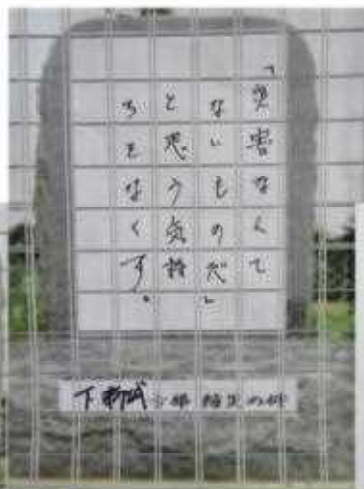 「災害なんて
ないものだ」
と思う気持
ちをなくす。
下新城